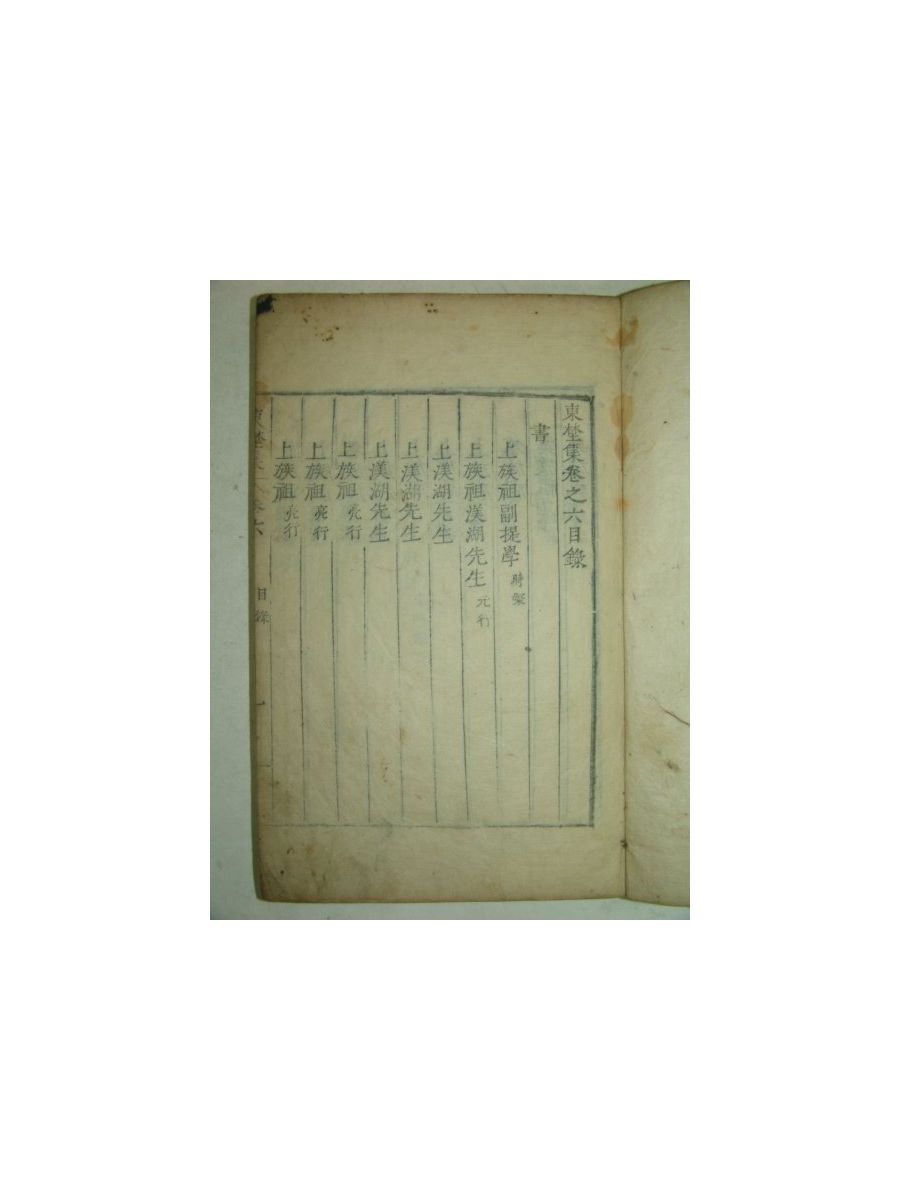 東埜集卷之六目錄
書
上族祖副提學 時粲
上族祖渼湖先生 元行
上渼湖先生
上渼湖先生
上渼湖先生
上族祖 亮行
上族祖 亮行
上族祖 亮行
東埜集 卷六 目錄 一